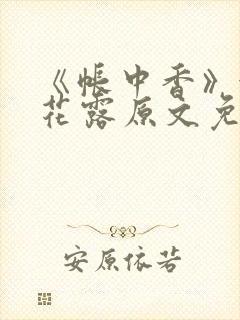 《帐中香》
花露原文免
安原依若